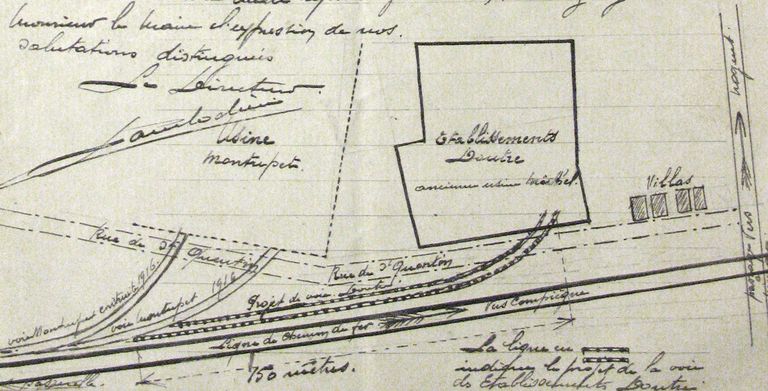 Monsieur le Maire l'expression de nos
salutations distinguées
Le Directeur
Usine
Montupet.
Etablissements
Doutre
ancienne usine
Villas
Nogent
passage vers
Rue de St Quentin
Rue de St Quentin
voie Montupet construite 1916.
voie Montupet 1916
Projet de voie Doutre
Ligne de Chemin de fer
Vers Compiègne
passerelle
150 mètres.
La ligne en
indique le projet de la voie
des Etablissements Doutre